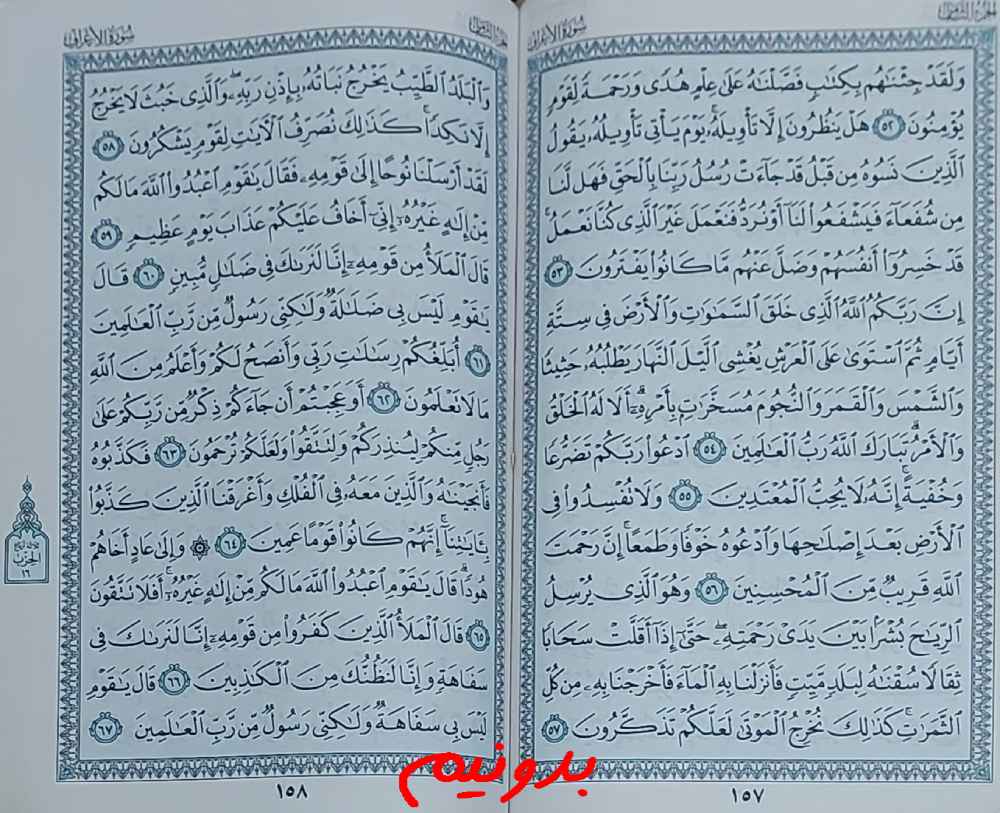 الجزء الثامن
سورة الأعراف
وَلَقَدْ جِئْنَٰهُم بِكِتَٰبٍ فَصَّلْنَٰهُ عَلَىٰ عِلْمٍ هُدًى وَرَحْمَةً لِّقَوْمٍ
يُؤْمِنُونَ ٥٢ هَلْ يَنظُرُونَ إِلَّا تَأْوِيلَهُۥ يَوْمَ يَأْتِى تَأْوِيلُهُۥ يَقُولُ
ٱلَّذِينَ نَسُوهُ مِن قَبْلُ قَدْ جَآءَتْ رُسُلُ رَبِّنَا بِٱلْحَقِّ فَهَل لَّنَا
مِن شُفَعَآءَ فَيَشْفَعُوا۟ لَنَآ أَوْ نُرَدُّ فَنَعْمَلَ غَيْرَ ٱلَّذِى كُنَّا نَعْمَلُ ۚ
قَدْ خَسِرُوٓا۟ أَنفُسَهُمْ وَضَلَّ عَنْهُم مَّا كَانُوا۟ يَفْتَرُونَ ٥٣
إِنَّ رَبَّكُمُ ٱللَّهُ ٱلَّذِى خَلَقَ ٱلسَّمَٰوَٰتِ وَٱلْأَرْضَ فِى سِتَّةِ
أَيَّامٍ ثُمَّ ٱسْتَوَىٰ عَلَى ٱلْعَرْشِ يُغْشِى ٱلَّيْلَ ٱلنَّهَارَ يَطْلُبُهُۥ حَثِيثًا
وَٱلشَّمْسَ وَٱلْقَمَرَ وَٱلنُّجُومَ مُسَخَّرَٰتٍۭ بِأَمْرِهِۦٓ ۗ أَلَا لَهُ ٱلْخَلْقُ
وَٱلْأَمْرُ ۗ تَبَارَكَ ٱللَّهُ رَبُّ ٱلْعَٰلَمِينَ ٥٤ ٱدْعُوا۟ رَبَّكُمْ تَضَرُّعًا
وَخُفْيَةً ۚ إِنَّهُۥ لَا يُحِبُّ ٱلْمُعْتَدِينَ ٥٥ وَلَا تُفْسِدُوا۟ فِى
ٱلْأَرْضِ بَعْدَ إِصْلَٰحِهَا وَٱدْعُوهُ خَوْفًا وَطَمَعًا ۚ إِنَّ رَحْمَتَ
ٱللَّهِ قَرِيبٌ مِّنَ ٱلْمُحْسِنِينَ ٥٦ وَهُوَ ٱلَّذِى يُرْسِلُ
ٱلرِّيَٰحَ بُشْرًۢا بَيْنَ يَدَىْ رَحْمَتِهِۦ ۖ حَتَّىٰٓ إِذَآ أَقَلَّتْ سَحَابًا
ثِقَالًا سُقْنَٰهُ لِبَلَدٍ مَّيِّتٍ فَأَنزَلْنَا بِهِ ٱلْمَآءَ فَأَخْرَجْنَا بِهِۦ مِن كُلِّ
ٱلثَّمَرَٰتِ ۚ كَذَٰلِكَ نُخْرِجُ ٱلْمَوْتَىٰ لَعَلَّكُمْ تَذَكَّرُونَ ٥٧
١٥٧
الجزء الثامن
سورة الأعراف
وَٱلْبَلَدُ ٱلطَّيِّبُ يَخْرُجُ نَبَاتُهُۥ بِإِذْنِ رَبِّهِۦ ۖ وَٱلَّذِى خَبُثَ لَا يَخْرُجُ
إِلَّا نَكِدًا ۚ كَذَٰلِكَ نُصَرِّفُ ٱلْءَايَٰتِ لِقَوْمٍ يَشْكُرُونَ ٥٨
لَقَدْ أَرْسَلْنَا نُوحًا إِلَىٰ قَوْمِهِۦ فَقَالَ يَٰقَوْمِ ٱعْبُدُوا۟ ٱللَّهَ مَا لَكُم
مِّنْ إِلَٰهٍ غَيْرُهُۥٓ إِنِّىٓ أَخَافُ عَلَيْكُمْ عَذَابَ يَوْمٍ عَظِيمٍ ٥٩
قَالَ ٱلْمَلَأُ مِن قَوْمِهِۦٓ إِنَّا لَنَرَىٰكَ فِى ضَلَٰلٍ مُّبِينٍ ٦٠ قَالَ
يَٰقَوْمِ لَيْسَ بِى ضَلَٰلَةٌ وَلَٰكِنِّى رَسُولٌ مِّن رَّبِّ ٱلْعَٰلَمِينَ
٦١ أُبَلِّغُكُمْ رِسَٰلَٰتِ رَبِّى وَأَنصَحُ لَكُمْ وَأَعْلَمُ مِنَ ٱللَّهِ
مَا لَا تَعْلَمُونَ ٦٢ أَوَعَجِبْتُمْ أَن جَآءَكُمْ ذِكْرٌ مِّن رَّبِّكُمْ عَلَىٰ
رَجُلٍ مِّنكُمْ لِيُنذِرَكُمْ وَلِتَتَّقُوا۟ وَلَعَلَّكُمْ تُرْحَمُونَ ٦٣ فَكَذَّبُوهُ
فَأَنجَيْنَٰهُ وَٱلَّذِينَ مَعَهُۥ فِى ٱلْفُلْكِ وَأَغْرَقْنَا ٱلَّذِينَ كَذَّبُوا۟
بِـَٔايَٰتِنَآ ۚ إِنَّهُمْ كَانُوا۟ قَوْمًا عَمِينَ ٦٤ ۞ وَإِلَىٰ عَادٍ أَخَاهُمْ
هُودًا ۗ قَالَ يَٰقَوْمِ ٱعْبُدُوا۟ ٱللَّهَ مَا لَكُم مِّنْ إِلَٰهٍ غَيْرُهُۥٓ ۚ أَفَلَا تَتَّقُونَ
٦٥ قَالَ ٱلْمَلَأُ ٱلَّذِينَ كَفَرُوا۟ مِن قَوْمِهِۦٓ إِنَّا لَنَرَىٰكَ فِى
سَفَاهَةٍ وَإِنَّا لَنَظُنُّكَ مِنَ ٱلْكَٰذِبِينَ ٦٦ قَالَ يَٰقَوْمِ
لَيْسَ بِى سَفَاهَةٌ وَلَٰكِنِّى رَسُولٌ مِّن رَّبِّ ٱلْعَٰلَمِينَ ٦٧
الحزب
١٦
١٥٨
بدونيم